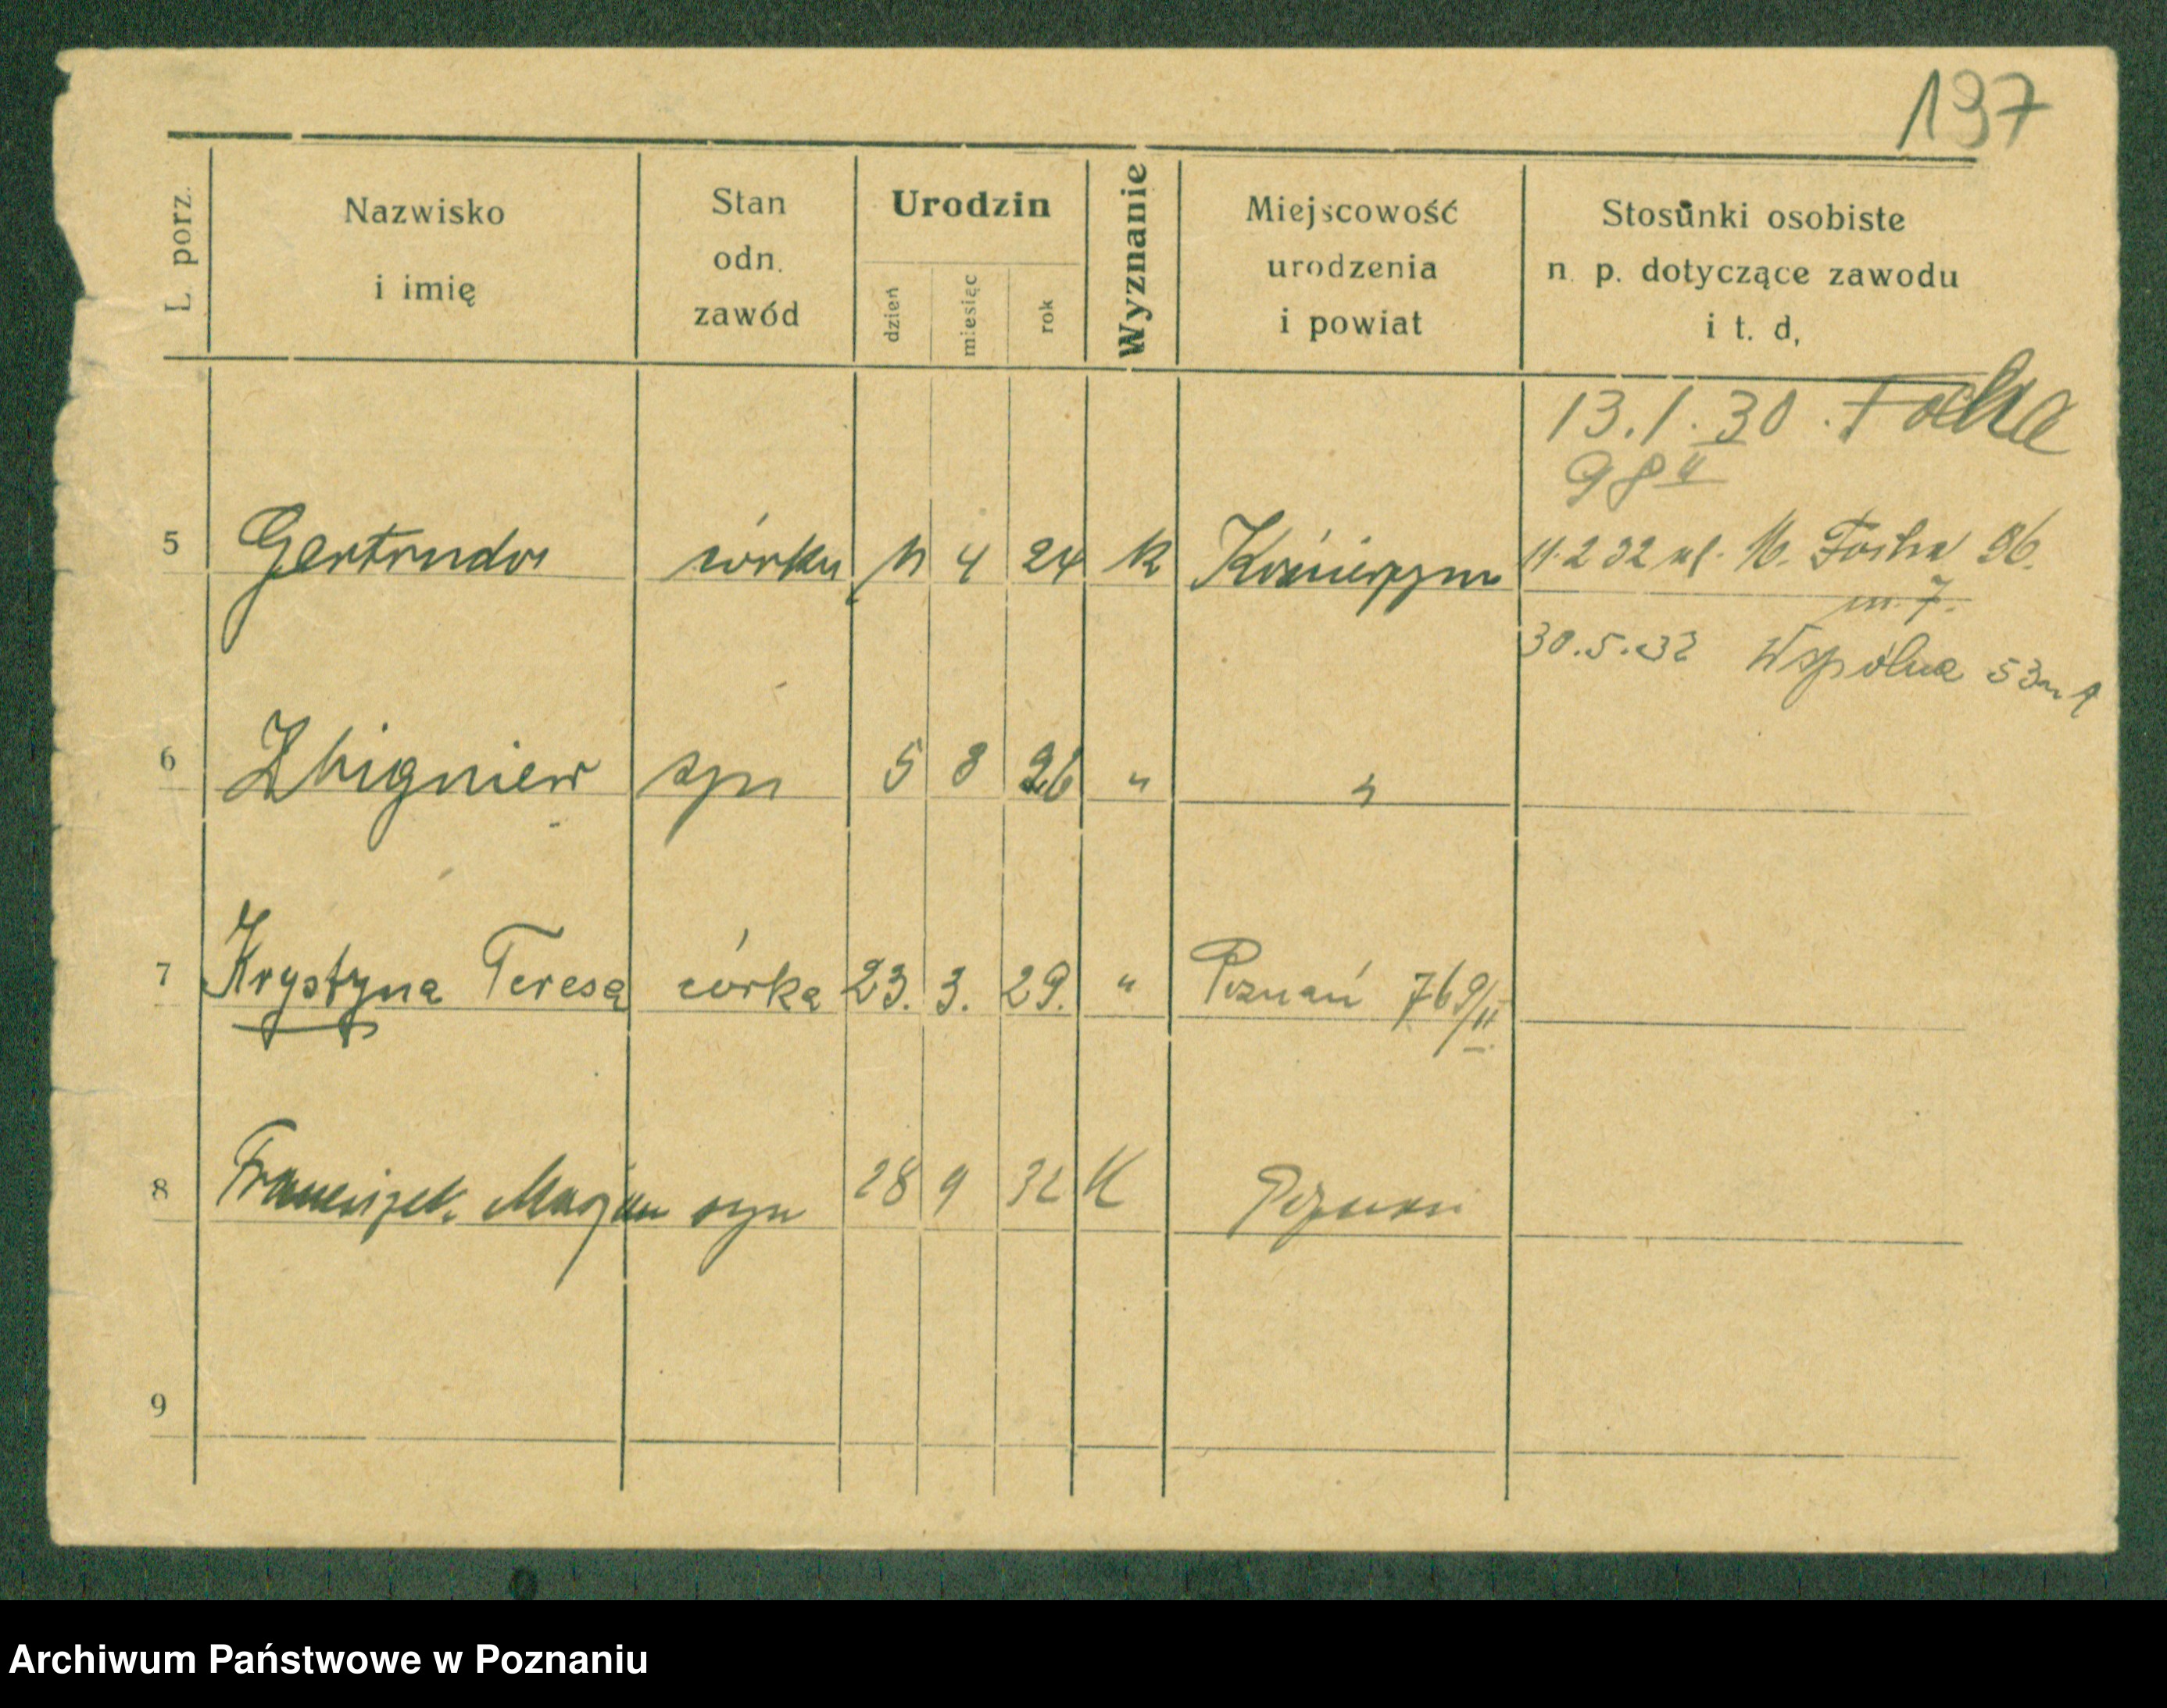 197
L. porz.
Nazwisko
i imię
Stan
odn.
zawód
Urodzin
dzień
miesiąc
rok
Wyznanie
Miejscowość
urodzenia
i powiat
Stosunki osobiste
n. p. dotyczące zawodu
i t. d,
13.1.30. Focha
98 II
5 Gertruda córka 11 4 24 k 11.2 32 ul. M. Focha 96.
m. 7.
30.5.32 Wspólna 53 m
6 Zbigniew syn 5 8 26 " "
7 Krystyna Teresa córka 23. 3. 29. " Poznań 769/II
8 Franciszek Marjan syn 28 9 32 K Poznań
9
Archiwum Państwowe w Poznaniu